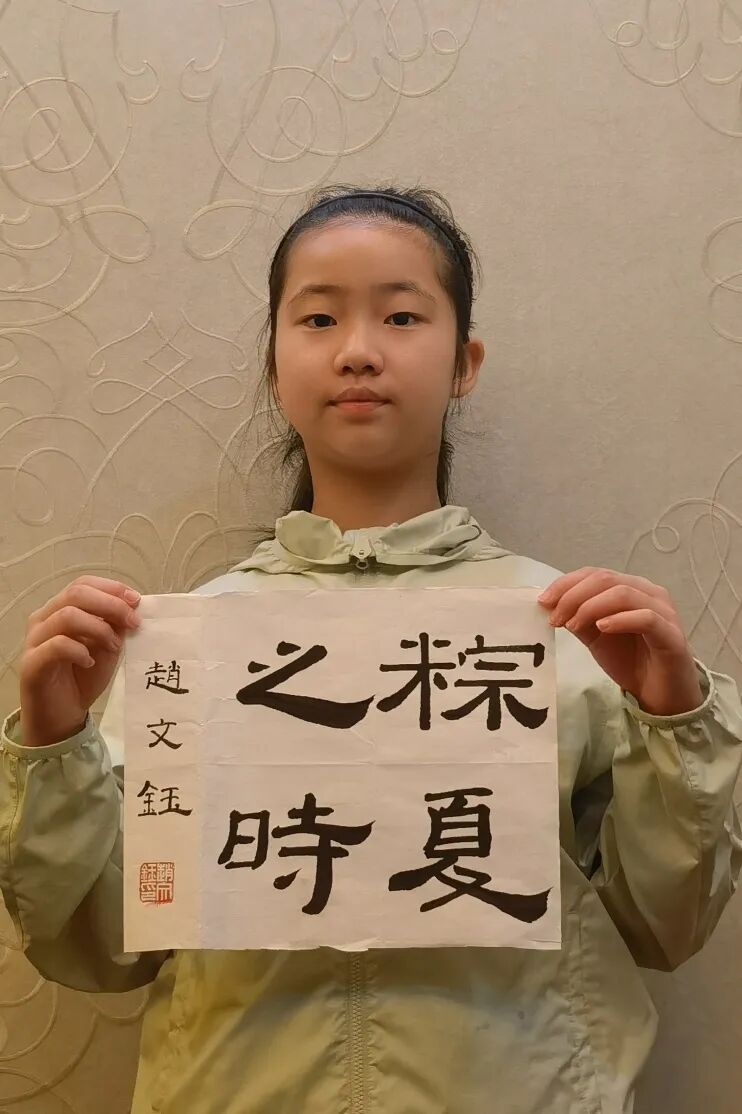 粽夏
之時
趙文鈺